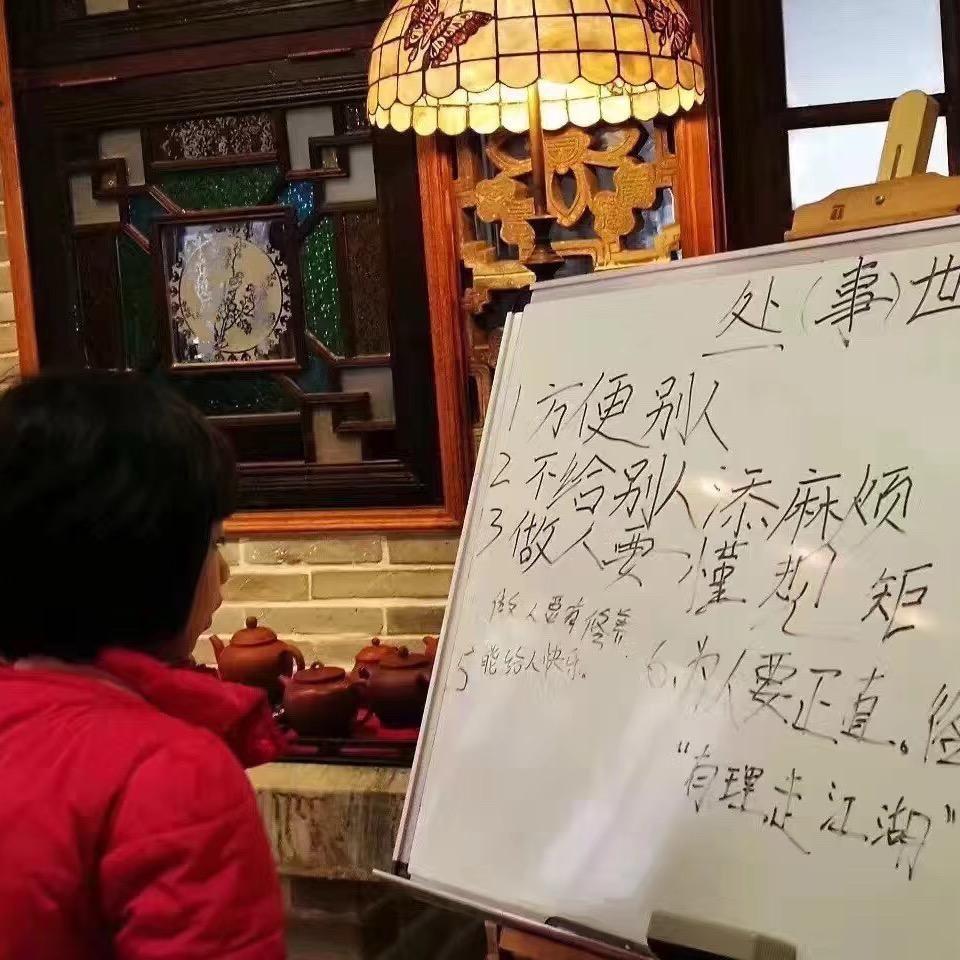 处(事)世
1 方便别人
2 不给别人添麻烦
3 做人要懂规矩
做人要有修养
5 能给人快乐。
6.为人要正直。
"有理走江湖"